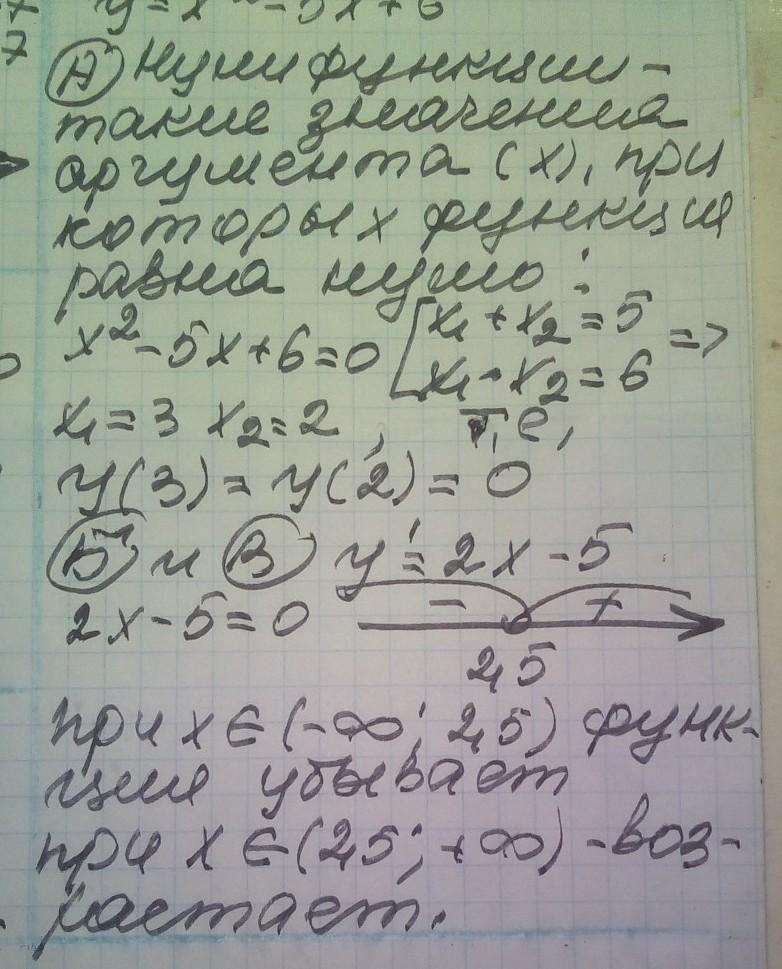 y = x² - 5x + 6
7
А) Нули функции -
такие значения
аргумента (x), при
которых функция
равна нулю:
x² - 5x + 6 = 0 [x₁ + x₂ = 5 =>
x₁ · x₂ = 6
x₁ = 3 x₂ = 2, т,е,
y(3) = y(2) = 0
Б) и В) y' = 2x - 5
2x - 5 = 0 - +
2,5
при x ∈ (-∞; 2,5) функ-
ция убывает
при x ∈ (2,5; +∞) - воз-
растает.